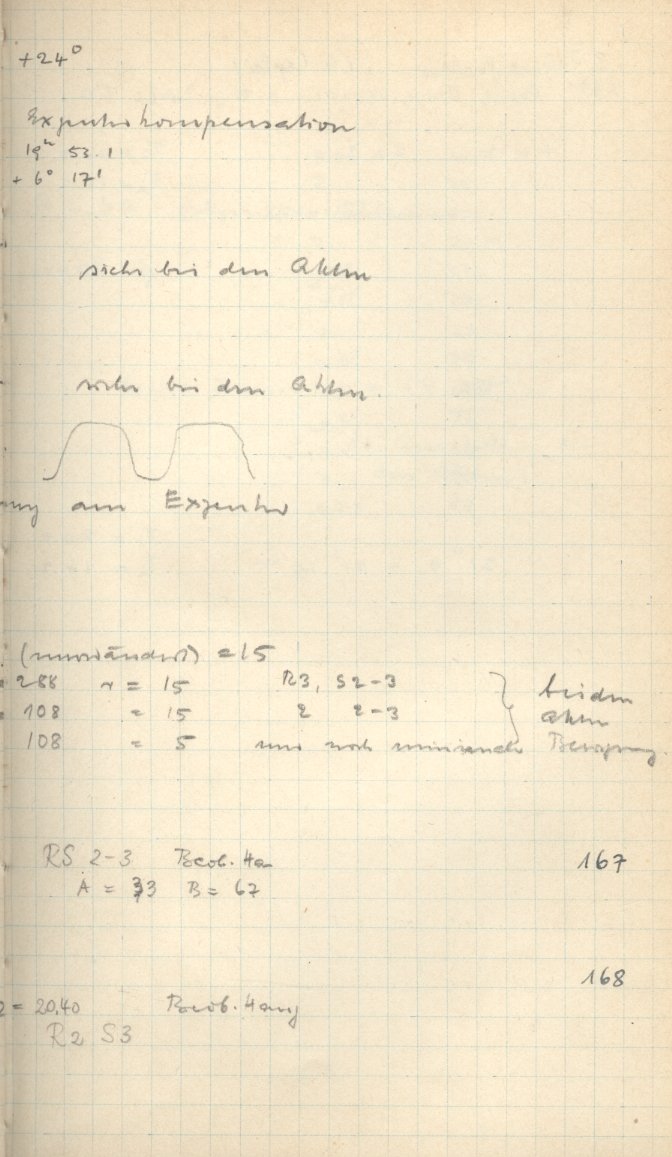 +24°
Exzenterkompensation
19h 53.1
+ 6° 17'
siehe bei den Akten
siehe bei den Akten.
am Exzenter
(unverändert) = 15
288 r = 15 R3, S2-3
108 = 15 2 2-3 bei den
Akten
108 = 5 nur noch minimale Bewegung.
RS 2-3 Beob. Hang 167
A = 33 B = 67
168
2 = 20,40 Beob. Hang
R2 S3